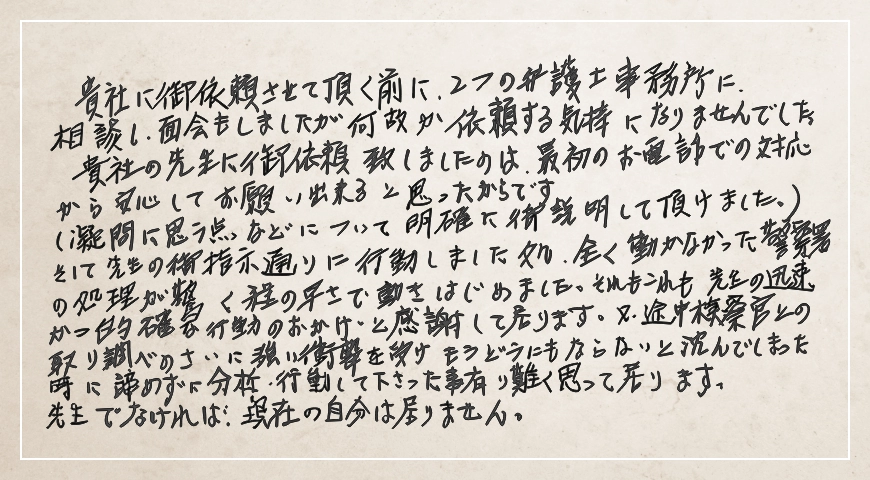 貴社に御依頼させて頂く前に、2つの弁護士事務所に、
相談し、面会もしましたが何故か依頼する気持になりませんでした
貴社の先生に御依頼致しましたのは、最初のお電話での対応
から安心してお願い出来ると思ったからです
(凝問に思う点などについて明確に御説明して頂けました。)
そして先生の御指示通りに行動しました処、全く動かなかった警察署
の処理が驚く程の早さで動きはじめました。それもこれも先生の迅速
かつ的確な行動のおかげ、と感謝して居ります。又、途中検察官との
取り調べのさいに強い衝撃を受けもうどうにもならないと沈んでしまった
時に諦めずに分析・行動して下さった事有り難く思って居ります。
先生でなければ、現在の自分は居りません。